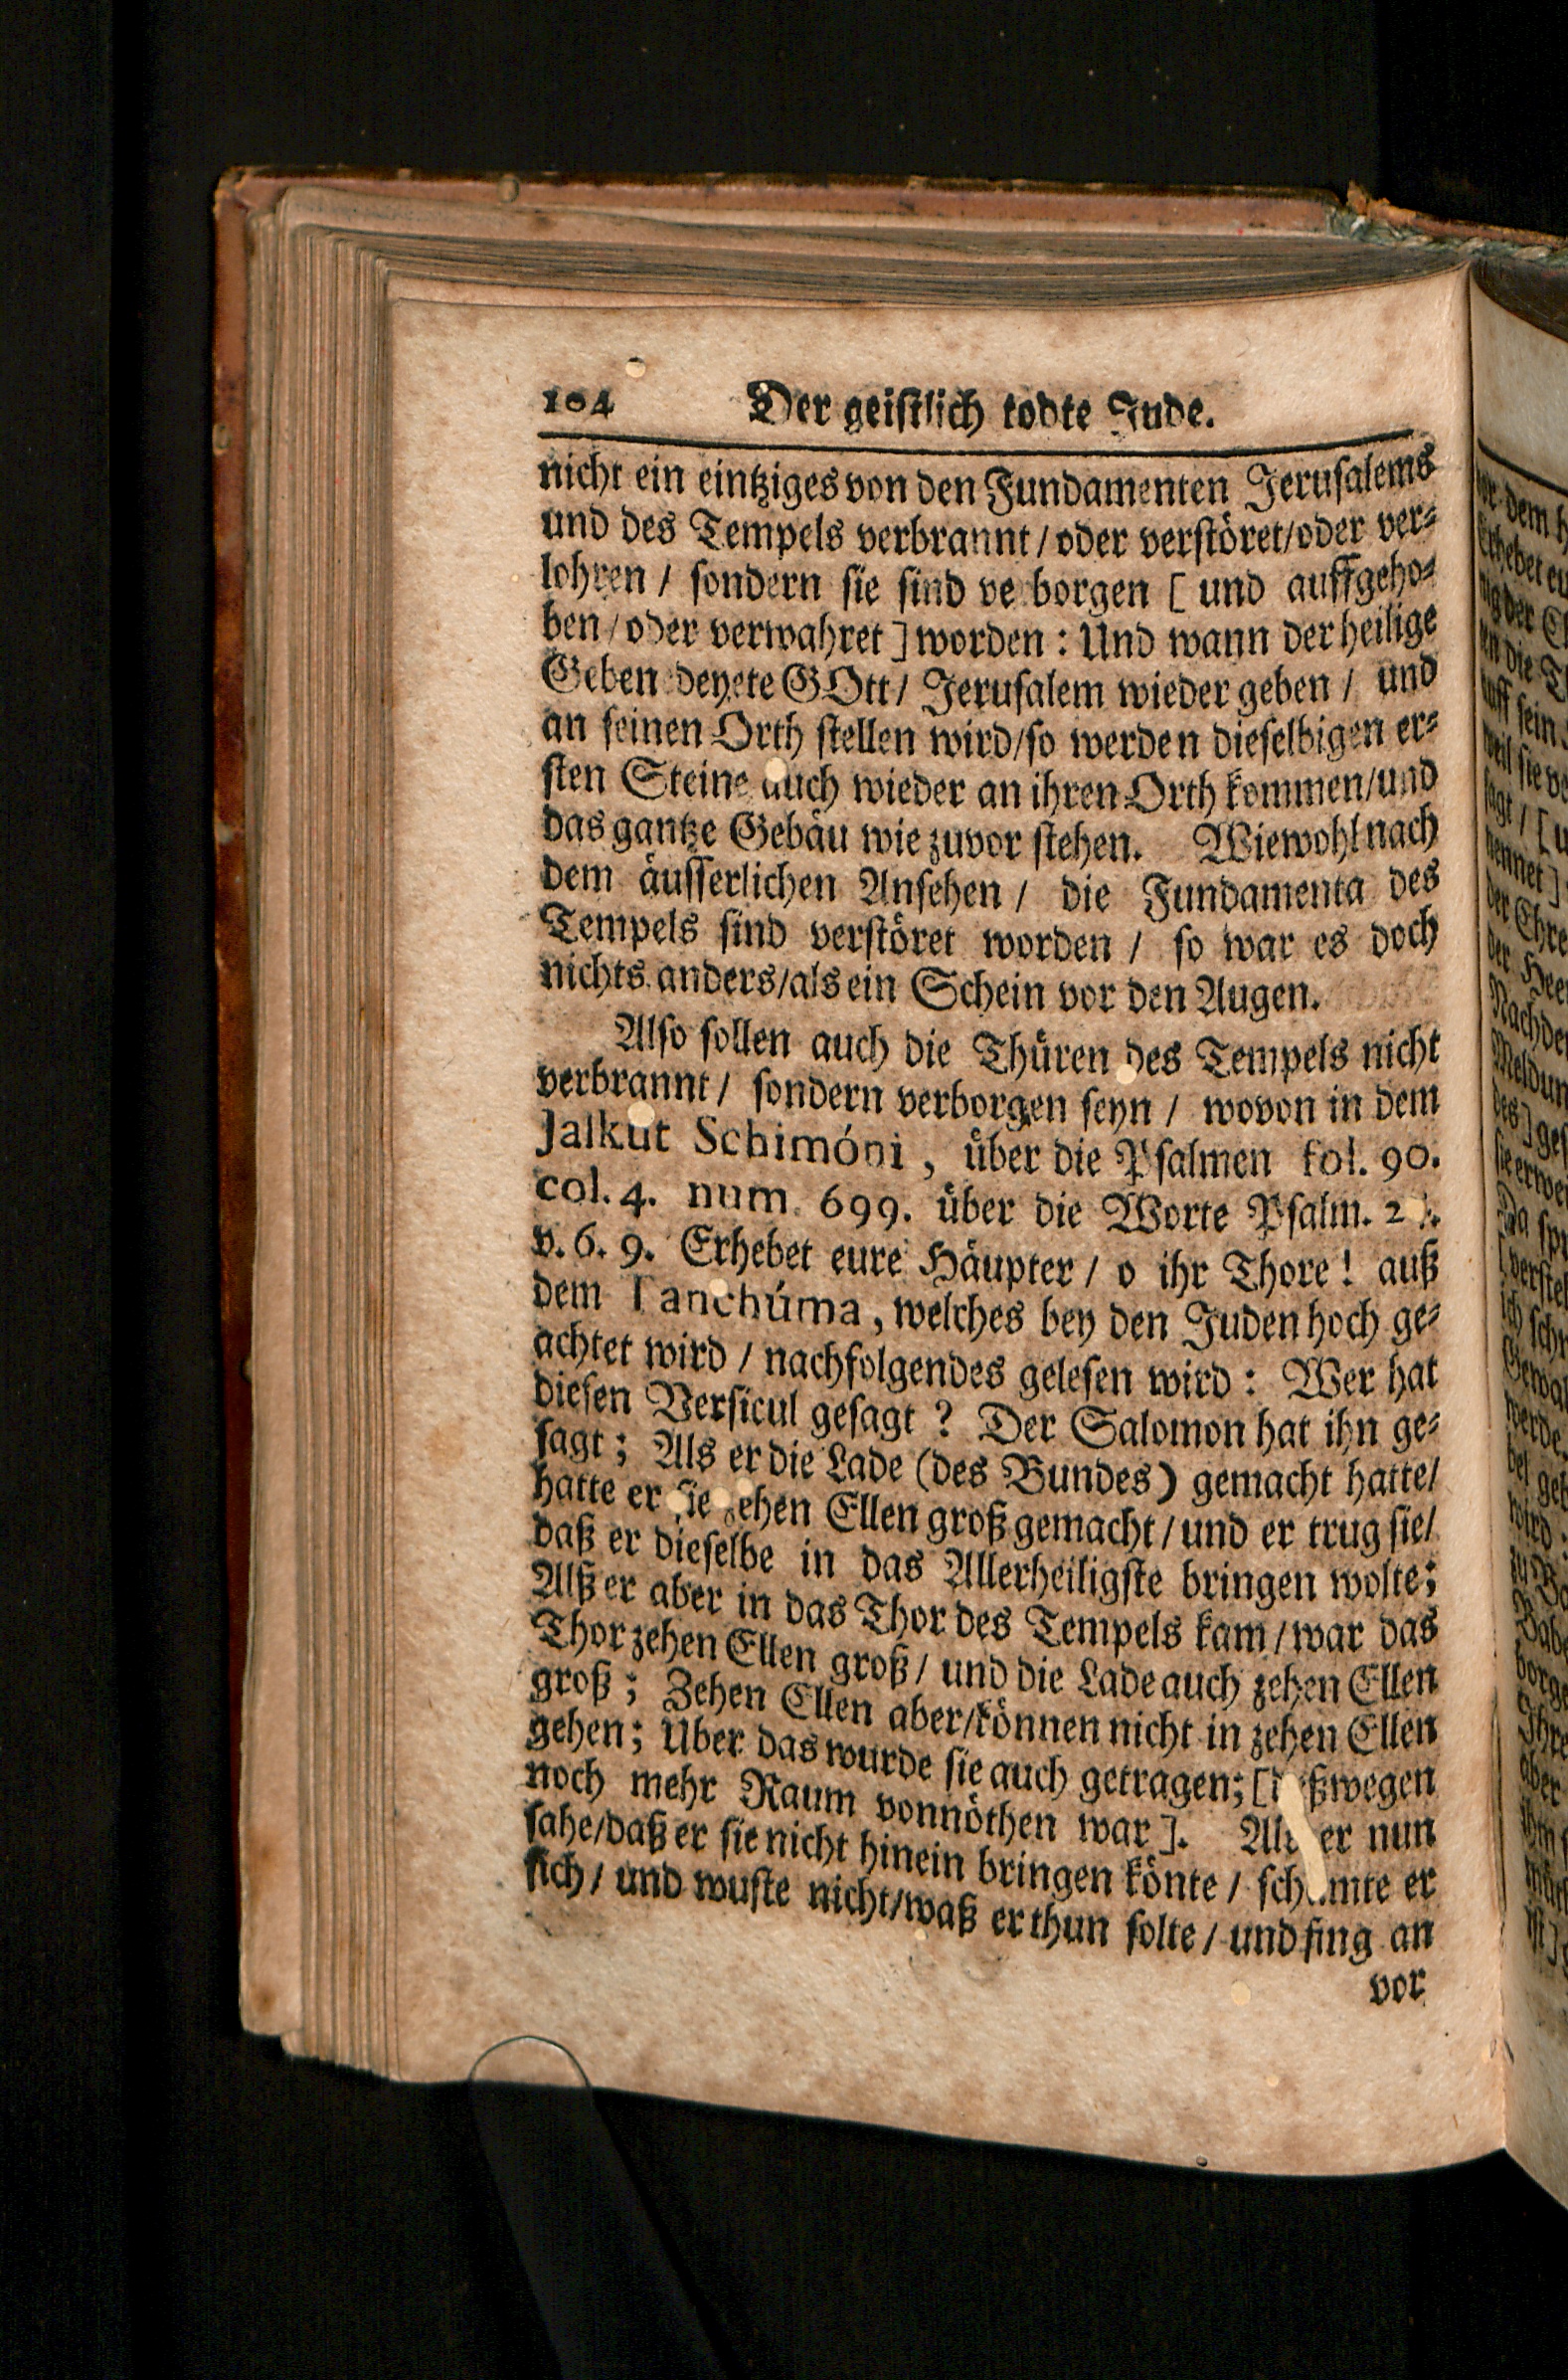 104 Der geistlich todte Jude.
nicht ein eintziges von den Fundamenten Jerusalems
und des Tempels verbrannt / oder verstöret/oder ver⸗
lohren / sondern sie sind ve borgen [ und auffgeho⸗
ben / oder verwahret ] worden : Und wann der heilige
Geben deyete GOtt / Jerusalem wieder geben / und
an seinen Orth stellen wird/so werden dieselbigen er⸗
sten Steine auch wieder an ihren Orth kommen/und
das gantze Gebäu wie zuvor stehen. Wiewohl nach
dem äusserlichen Ansehen / die Fundamenta des
Tempels sind verstöret worden / so war es doch
nichts anders/als ein Schein vor den Augen.
Also sollen auch die Thüren des Tempels nicht
verbrannt / sondern verborgen seyn / wovon in dem
Jalkut Schimóni, über die Psalmen fol. 90.
col. 4. num. 699. über die Worte Psalm.
v. 6. 9. Erhebet eure Häupter / o ihr Thore! auß
dem Tanchúma, welches bey den Juden hoch ge⸗
achtet wird / nachfolgendes gelesen wird : Wer hat
diesen Versicul gesagt ? Der Salomon hat ihn ge⸗
sagt ; Als er die Lade (des Bundes) gemacht hatte/
hatte er sie zehen Ellen groß gemacht / und er trug sie/
daß er dieselbe in das Allerheiligste bringen wolte;
Alß er aber in das Thor des Tempels kam / war das
Thor zehen Ellen groß / und die Lade auch zehen Ellen
groß ; Zehen Ellen aber/können nicht in zehen Ellen
gehen; Uber das wurde sie auch getragen; [ßwegen
noch mehr Raum vonnöthen war ]. Als er nun
sahe/daß er sie nicht hinein bringen könte / schämte er
sich / und wuste nicht/waß er thun solte / und fing an
vor